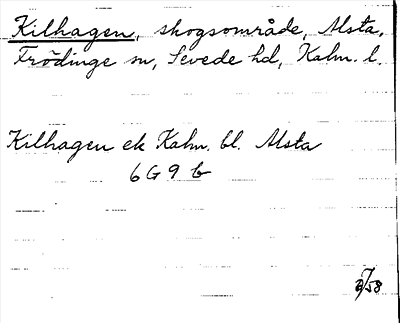 Kilhagen, skogsområde, Alsta,
Frödinge sn, Sevede hd, Kalm. l.
Kilhagen ek Kalm. bl. Alsta
6G9 b